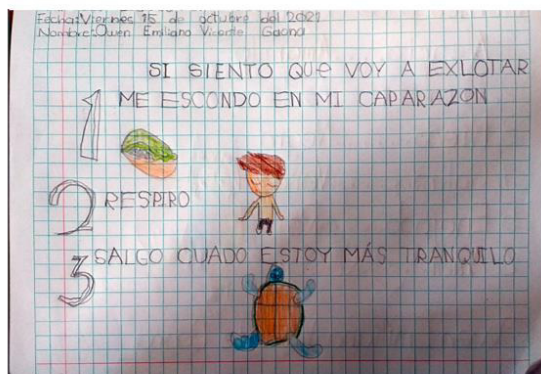 Fecha: Viernes 15 de octubre del 2021
Nombre: Owen Emiliano Vicente Gaona
SI SIENTO QUe VOY A EXLOTAR
1 ME ESCONDO EN MI CAPARAZON
2 RESPIRO
3 SALGO CUADO ESTOY MÁS TRANQUILO